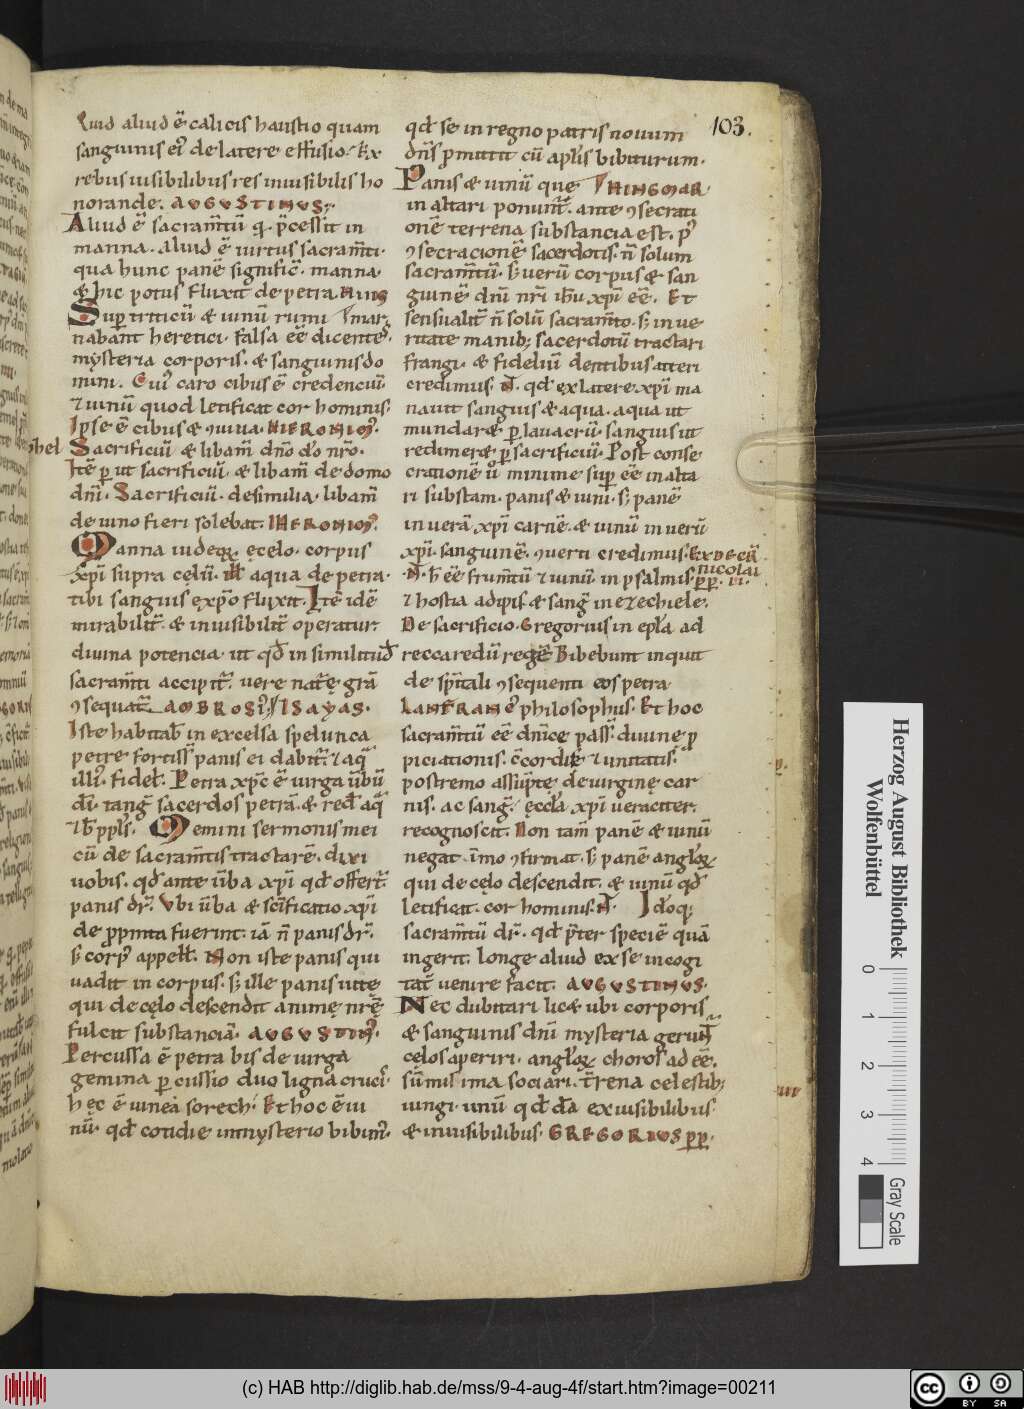 103.
Quid aliud ē calicis haustio quam
sanguinis ei᷒ de latere effusio. Ex
rebus uisibilibus res inuisibilis ho
norande. AUGUSTINUS.
Aliud ē sacram̄tū q̄ p̄cessit in
manna. aliud ē uirtus sacram̄ti.
qua hunc panē significā. manna.
& hic potus fluxit de petra.
Sup̄ triticū & uinū rumi
nabant heretici. falsa eē dicentes.
mysteria corporis. & sanguinis do
mini. Cui᷒ caro cibus ē credenciū.
⁊ uinū quod letificat cor hominis.
Ipse ē cibus & ꝯuiua. HIERONIM᷒.
Sacrificiū & libam̄ dn̄o dō nr̄o.
Itē ꝑ ut sacrificiū. & libam̄ de domo
dn̄i. Sacrificiū. de similia. libam̄
de uino fieri solebat. IHERONIM᷒.
Manna iudeoꝝ. e celo. corpus
xp̄i supra celū. ill̄ aqua de petra.
tibi sanguis exp̄o fluxit. Itē idē
mirabilit̄. & inuisibilit̄ operatur
diuina potencia. ut qd̄ in similitud̄
sacram̄ti accipit̄. uere nat̄e grām̄
ꝯsequat̄. AMBROSI᷒. ISAYAS.
Iste habitab̄ in excelsa spelunca
petre fortiss̄ panis ei dabit̄. ⁊ aq̄
illi᷒ fidel̄. Petra xp̄c ē uirga ūbū
dī. tanḡ sacerdos petrā. & red̄ aq̄
⁊ b̄ ppl̄s. Memini sermonis mei
cū de sacram̄tis tractarē. dixi
uobis. qd̄ ante ūba xp̄i qd̄ offert̄.
panis dr̄. Vbi ūba & sc̄ificatio xp̄i
de prompta fuerint. iā n̄ panis dr̄.
s̄ corp᷒ appell̄. Non iste panis qui
uadit in corpus. s̄ ille panis uite
qui de cęlo descendit animę nr̄ę
fulcit substanciā. AUGUSTIN᷒.
Percussa ē petra bis de uirga
gemina ꝑcussio duo ligna cruci᷒.
hęc ē uinea sorech. Et hoc ē ui
nū. qd̄ cotidie in mysterio bibim᷒.
qd̄ se in regno patris nouum
dn̄s p̄mittit cū apl̄is bibiturum.
Panis & uinū que
in altari ponunt̄. ante ꝯsecrati
onē terrena substancia est. p᷒
ꝯsecracionē sacerdotis. n̄ solum
sacram̄tū. s̄ uerū corpus & san
guinē dn̄i nr̄i ih̄u xp̄i eē. Et
sensualit̄ n̄ solū sacram̄to. s̄ in ue
ritate manibꝫ sacerdotū tractari
frangi. & fideliū dentibus atteri
credimus. N̄. qd̄ ex latere xp̄i ma
nauit sanguis & aqua. aqua ut
mundaræ ꝑ lauacrū. sanguis ut
redimeræ ꝑ sacrificiū. Post conse
crationē ū minime sup̄ eē in alta
ri substam̄. panis & uini. s̄ panē
in uerā xp̄i carnē. & uinū in uerū
xp̄i sanguinē. ꝯuerti credimus. EX DECR̄
NICOLAI PP. II.
N̄. h̄ eē frum̄tū ⁊ uinū in psalmis.
⁊ hostia adipis & sanḡ in ezechiele.
De sacrificio. Gregorius in epl̄a ad
reccaredū regē Bibebunt inquit
de sp̄itali ꝯsequenti eos petra.
LANFRANC᷒ philosophus. Et hoc
sacram̄tū eē dn̄ice pass̄. diuine ꝓ
piciationis. c̄cordię ⁊ unitatis.
postremo assūpte de uirginę car
nis. ac sanḡ. ęccl̄a xp̄i ueraciter.
recognoscit. Non tam̄ panē & uinū
negat. īmo ꝯfirmat. s̄ panē angl̄oꝝ
qui de cęlo descendit. & uinū qd̄
letificat. cor hominis. N̄. Id̄oqꝫ
sacram̄tū dr̄. qd̄ p̄ter speciē quā
ingerit. longe aliud ex se in cogi
tat̄ uenire facit. AUGUSTINUS.
Nec dubitari licæ ubi corporis
& sanguinis dn̄i mysteria gerunt̄
cęlos aperiri. angl̄oꝝ choros ad eē.
sūmis ima sociari. t̄rena celestibꝫ
iungi. unū qd̄dā ex uisibilibus.
& inuisibilibus. GREGORIUS PP.
Herzog August Bibliothek
Wolfenbüttel
0 1 2 3 4
Gray Scale
(c) HAB http://diglib.hab.de/mss/9-4-aug-4f/start.htm?image=00211
cc BY SA